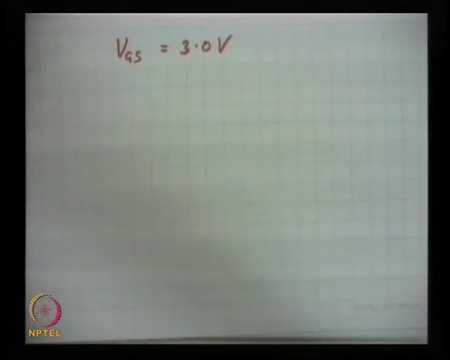 V_GS = 3.0 V
NPTEL